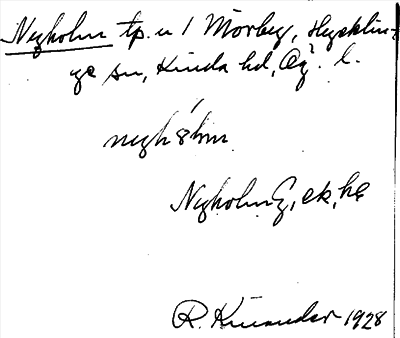 Nyholm tp. u / Mörby, Hycklin-
ge sn, Kinda hd, Ög. l.
nyhólm
Nyholm, ek, he
R. Kinander 1928